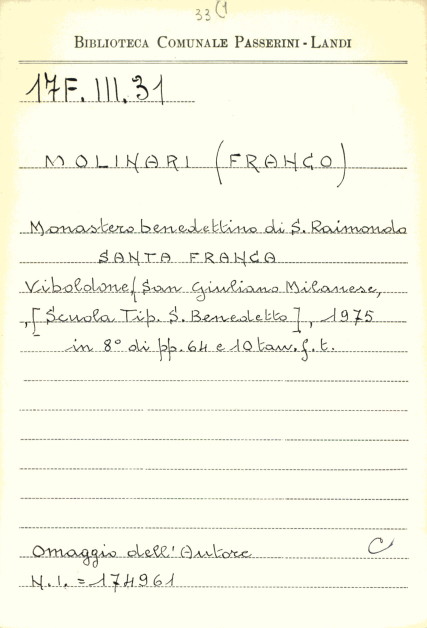 33(1
BIBLIOTECA COMUNALE PASSERINI - LANDI
17F.III.31
MOLINARI (FRANCO)
Monastero benedettino di S. Raimondo
SANTA FRANCA
Viboldone/San Giuliano Milanese,
,[Scuola Tip. S. Benedetto], 1975
in 8° di pp. 64 e 10 tav. f. t.
Omaggio dell'Autore C
N.I. = 174961